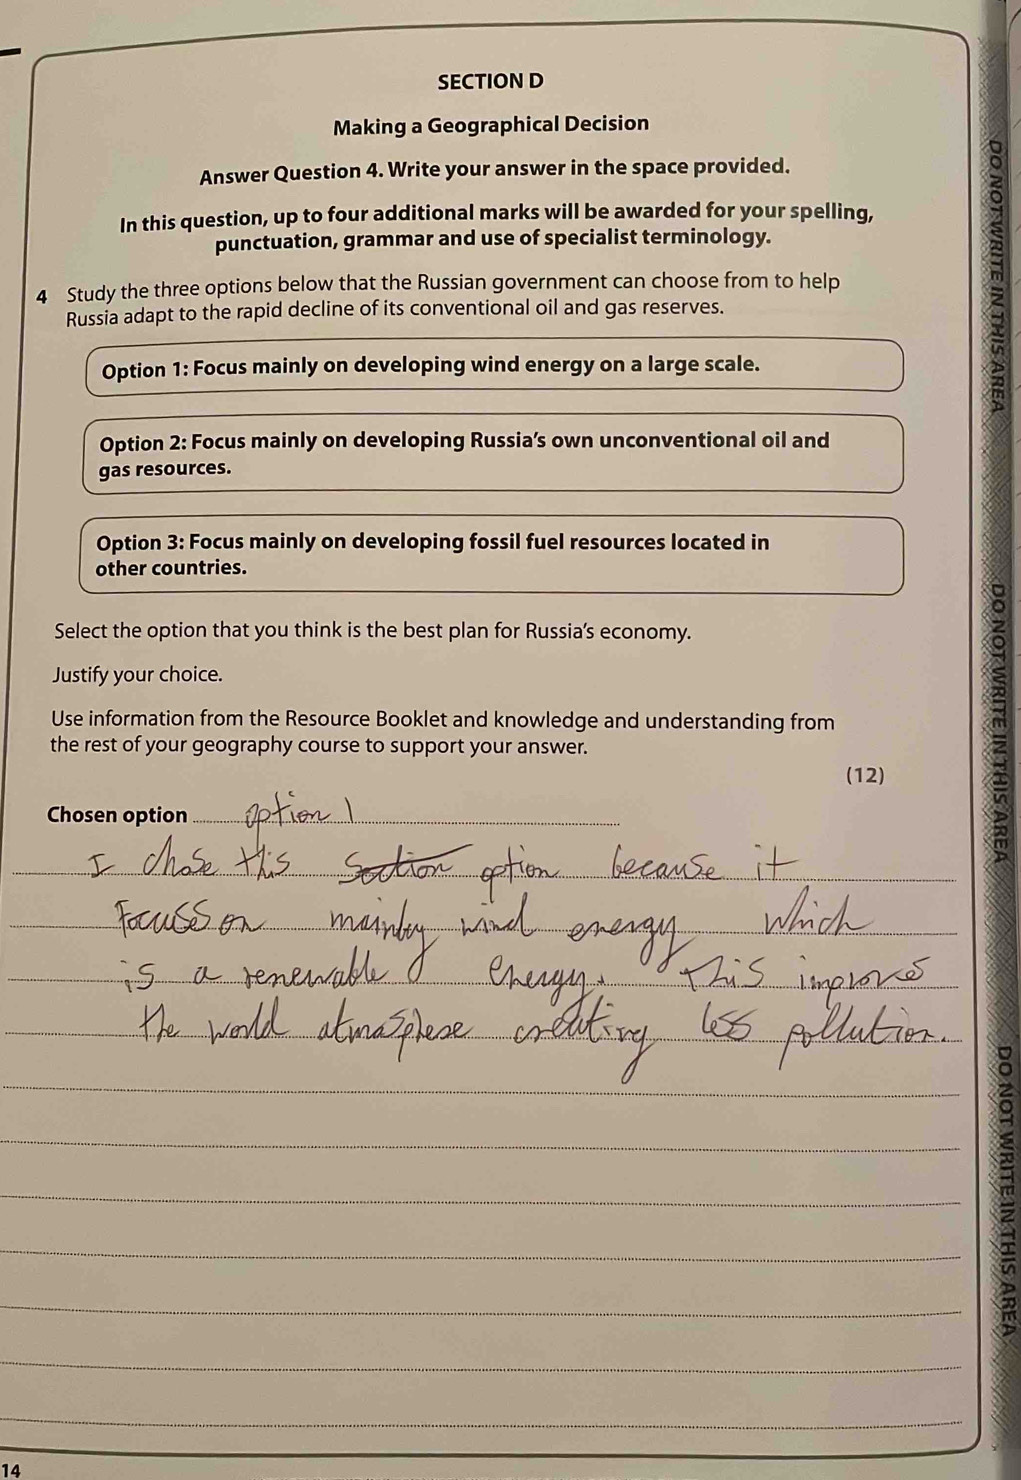 SECTION D
Making a Geographical Decision
Answer Question 4. Write your answer in the space provided.
In this question, up to four additional marks will be awarded for your spelling,
punctuation, grammar and use of specialist terminology.
4 Study the three options below that the Russian government can choose from to help
Russia adapt to the rapid decline of its conventional oil and gas reserves.
Option 1: Focus mainly on developing wind energy on a large scale.
Option 2: Focus mainly on developing Russia's own unconventional oil and
gas resources.
Option 3: Focus mainly on developing fossil fuel resources located in
other countries.
Select the option that you think is the best plan for Russia's economy.
Justify your choice.
Use information from the Resource Booklet and knowledge and understanding from
the rest of your geography course to support your answer.
(12)
Chosen option option 1
I chose this section option because it
Focuses on mainly wind energy which
is a renewable energy. this improves
the world atmasphese creating less pollution.
14
DO NOT WRITE IN THIS AREA
DO NOT WRITE IN THIS AREA
DO NOT WRITE IN THIS AREA